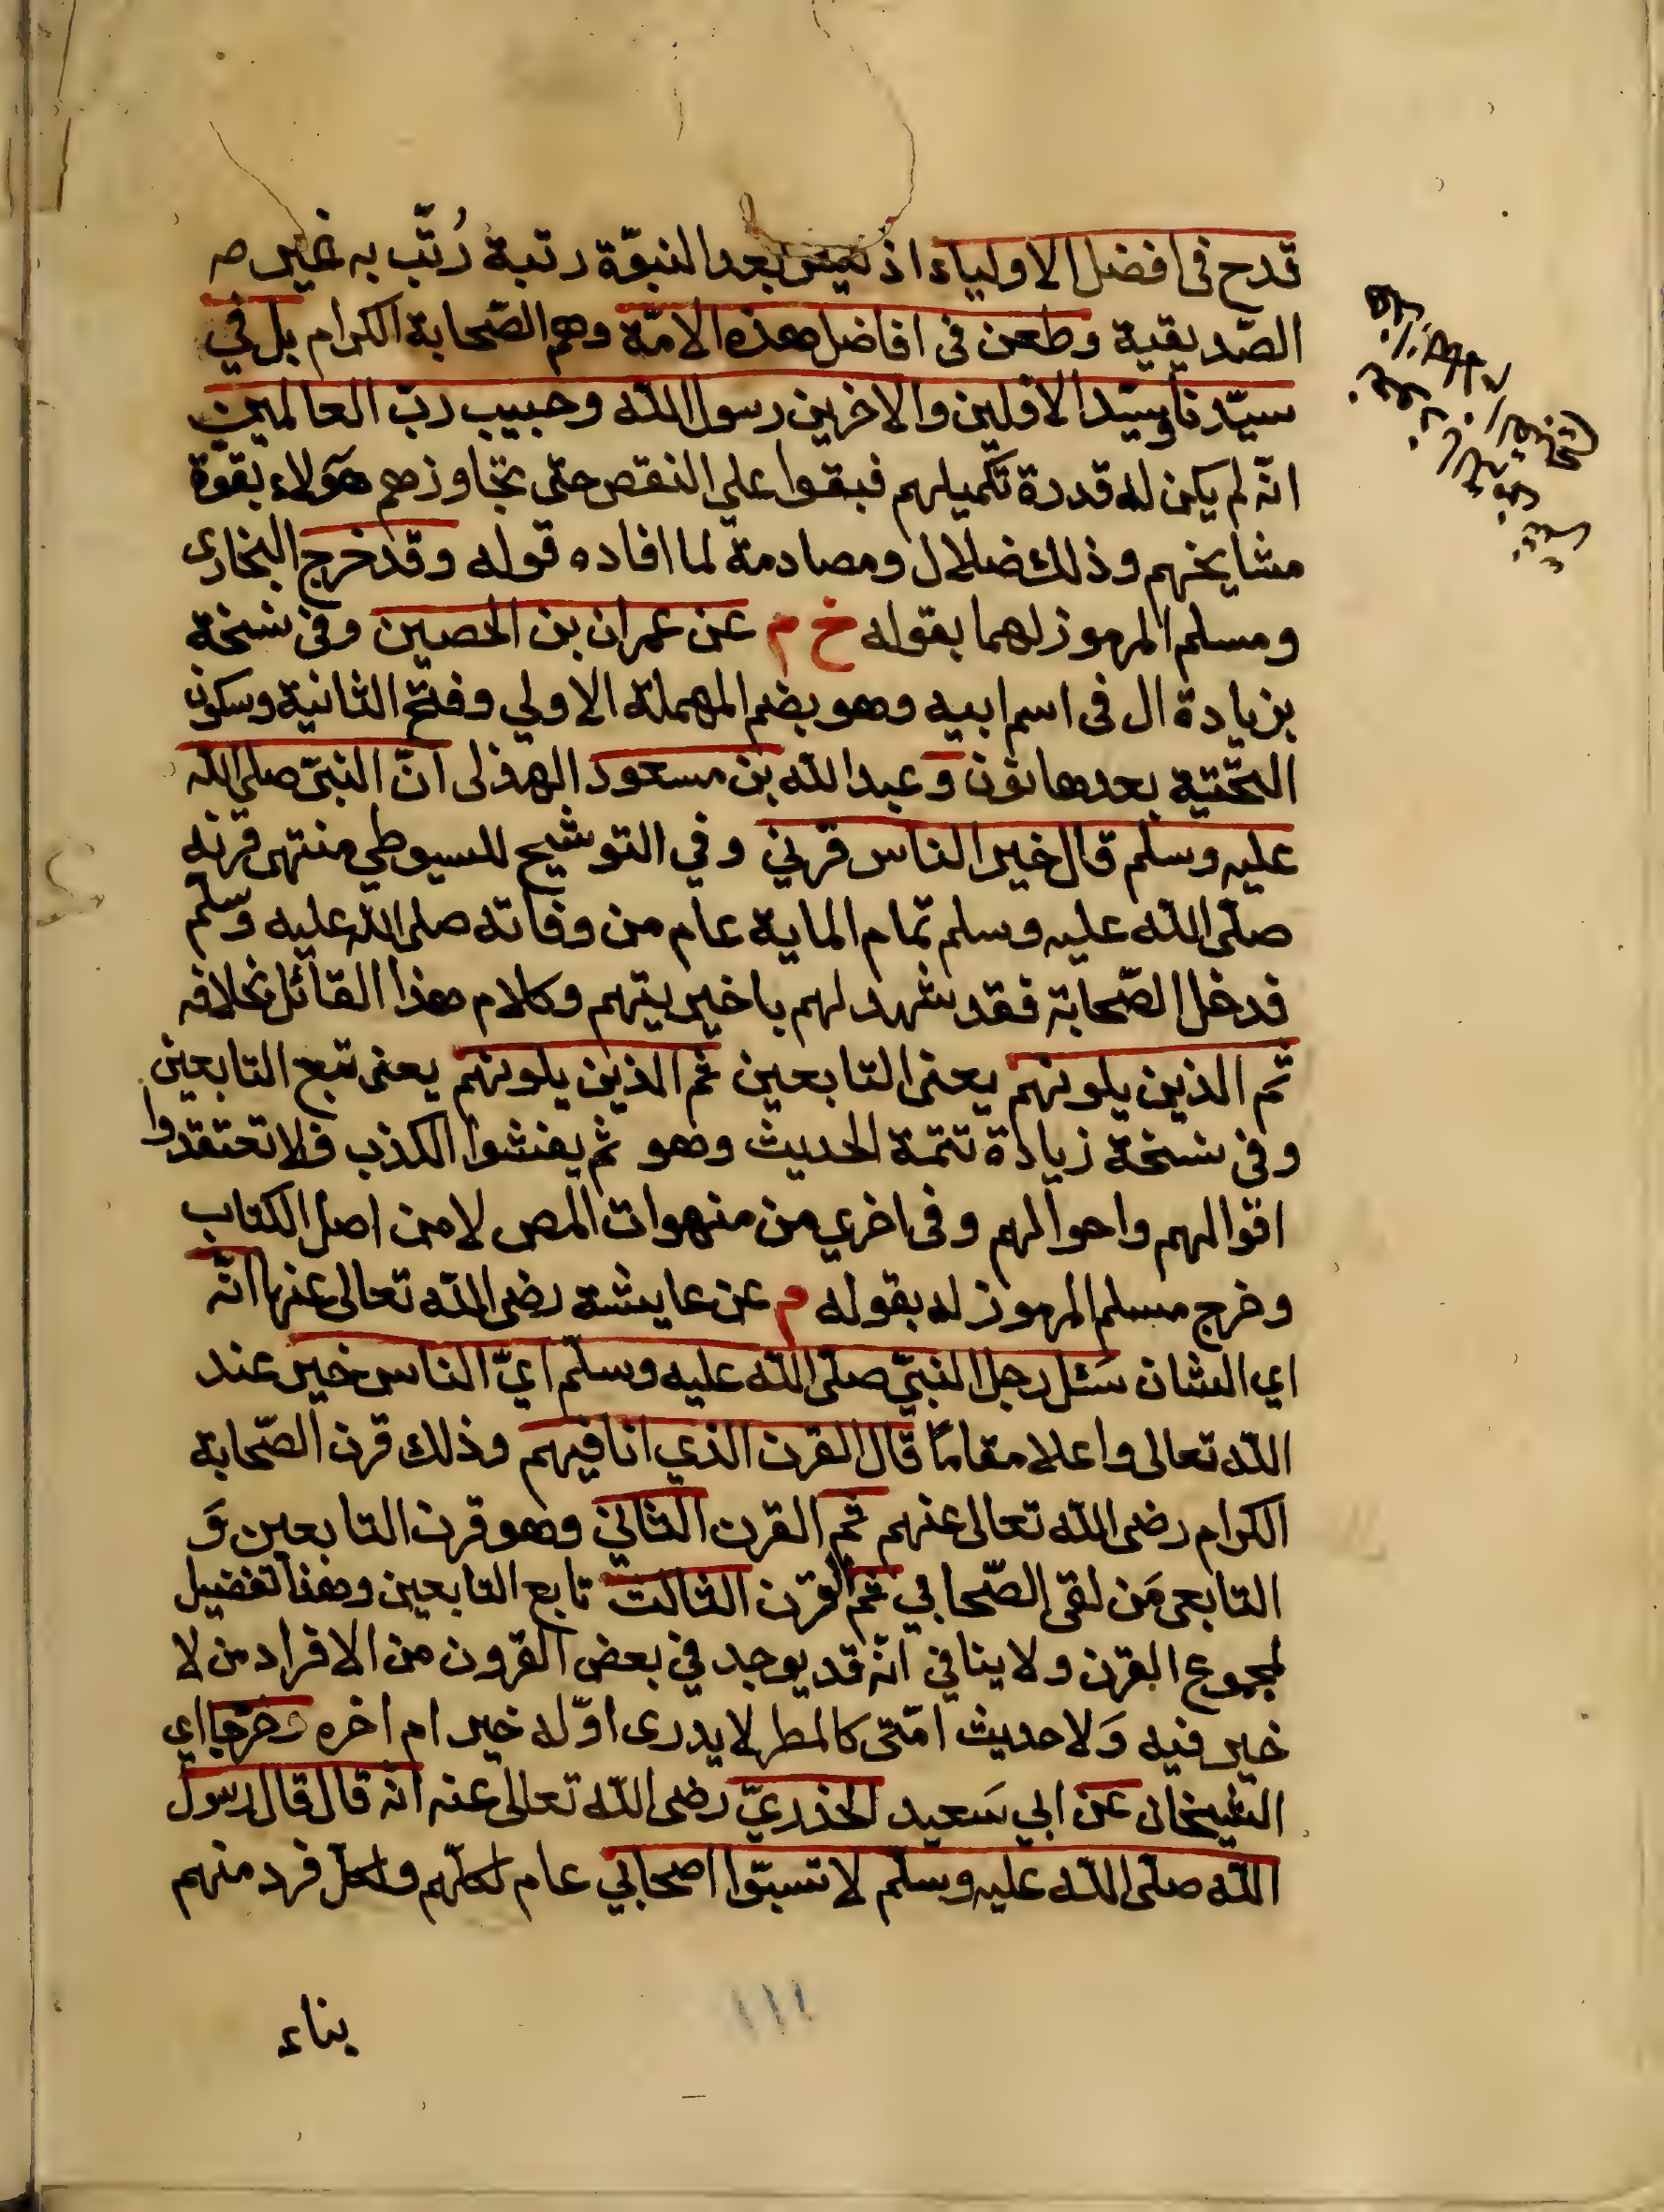 قدح فى افضل الاولياء اذ ليس بعد النبوّة رتبة رُتّب به غير
الصّديقية وطعن فى افاضل هذه الامّة وهم الصّحابة الكرام بل في
سيّدنا وسيّد الاوّلين والاخرين رسول الله وحبيب ربّ العالمين
انّه لم يكن له قدرة تكميلهم فبقوا على النقص حتى تجاوزهم هؤلاء بقوة
مشايخهم وذلك ضلال ومصادمة لما افاده قوله وقد خرج البخارى
ومسلم المرموز لهما بقوله خ م عن عمران بن الحصين وفى نسخة
بزيادة ال فى اسم ابيه وهو بضم المهملة الاولي وفتح الثانية وسكون
التحتية بعدها نون وعبد الله بن مسعود الهذلى انّ النبىّ صلى الله
عليه وسلم قال خير الناس قرني وفي التوشيح للسيوطي منتهى قرنه
صلّى الله عليه وسلم تمام الماية عام من وفاته صلى الله عليه وسلم
فدخل الصّحابة فقد شهد لهم باخيريتهم وكلام هذا القائل بخلافه
ثم الذين يلونهم يعنى التابعين ثم الذين يلونهم يعنى تبع التابعين
وفى نسخة زيادة تتمة الحديث وهو ثم يفشوا الكذب فلا تعتقدوا
اقوالهم واحوالهم وفى اخري من منهوات المص لا من اصل الكتاب
وخرج مسلم المرموز له بقوله م عن عايشة رضى الله تعالى عنها انّه
اي الشان سئل رجل النبىّ صلّى الله عليه وسلّم ايّ الناس خير عند
الله تعالى واعلا مقامًا قال القرن الذي انا فيهم وذلك قرن الصّحابة
الكرام رضى الله تعالى عنهم ثم القرن الثاني وهو قرن التابعين وَ
التابعى مَن لقى الصّحابي ثم القرن الثالث تابع التابعين وهذا تفضيل
لمجموع القرن ولا ينافي انّه قد يوجد في بعض القرون من الافراد من لا
خير فيه وَلا حديث امّتى كالمطر لا يدرى اوّله خير ام اخره وخرجا اي
الشيخان عن ابي سَعيد الخدريّ رضى الله تعالى عنه انّه قال قال رسول
الله صلّى الله عليه وسلّم لا تسبّوا اصحابي عام لكلّهم ولكلّ فرد منهم
بناء
١١١